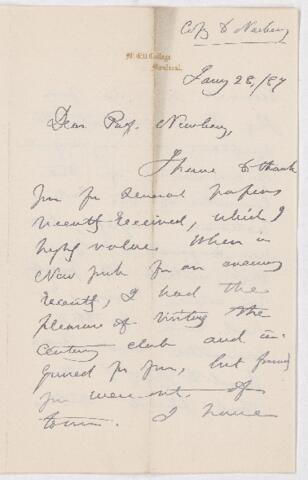 Copy to Newberry
McGill College
Montreal.
Jany 28/87
Dear Prof. Newberry,
I have to thank
you for several papers
recently received, which I
highly value. When in
New York for an evening
recently, I had the
pleasure of visiting the
Century club and in-
quired for you, but found
you were out of
town. I have